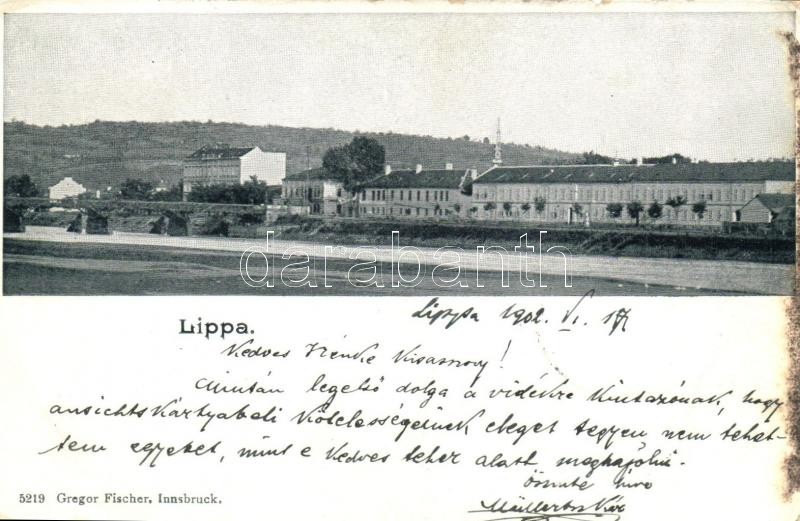 darabanth
Lippa.
Lippa 1902. VI. 17
Kedves Irénke Kisasszony!
Miután legelső dolga a vidékre kiutazónak, hogy
ansichtskártyabeli kötelességeinek eleget tegyen, nem tehet-
tem egyebet, mint e kedves teher alatt meghajolni.
őszinte híve
5219 Gregor Fischer, Innsbruck.